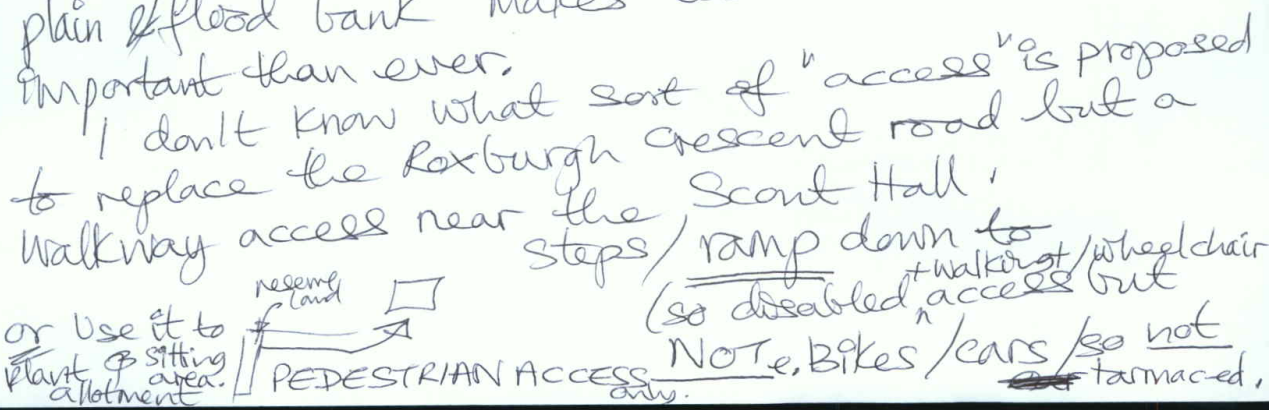 plain & flood bank makes
important than ever.
I don't know what sort of "access" is proposed
to replace the Roxburgh Crescent road but a
walkway access near the Scout Hall.
steps/ramp down to
(so disabled + walking + /wheelchair access but
NOT e. Bikes/cars/so not
tarmaced.
reserve
land
PEDESTRIAN ACCESS
only.
or Use it to
plant & sitting
area.
allotment